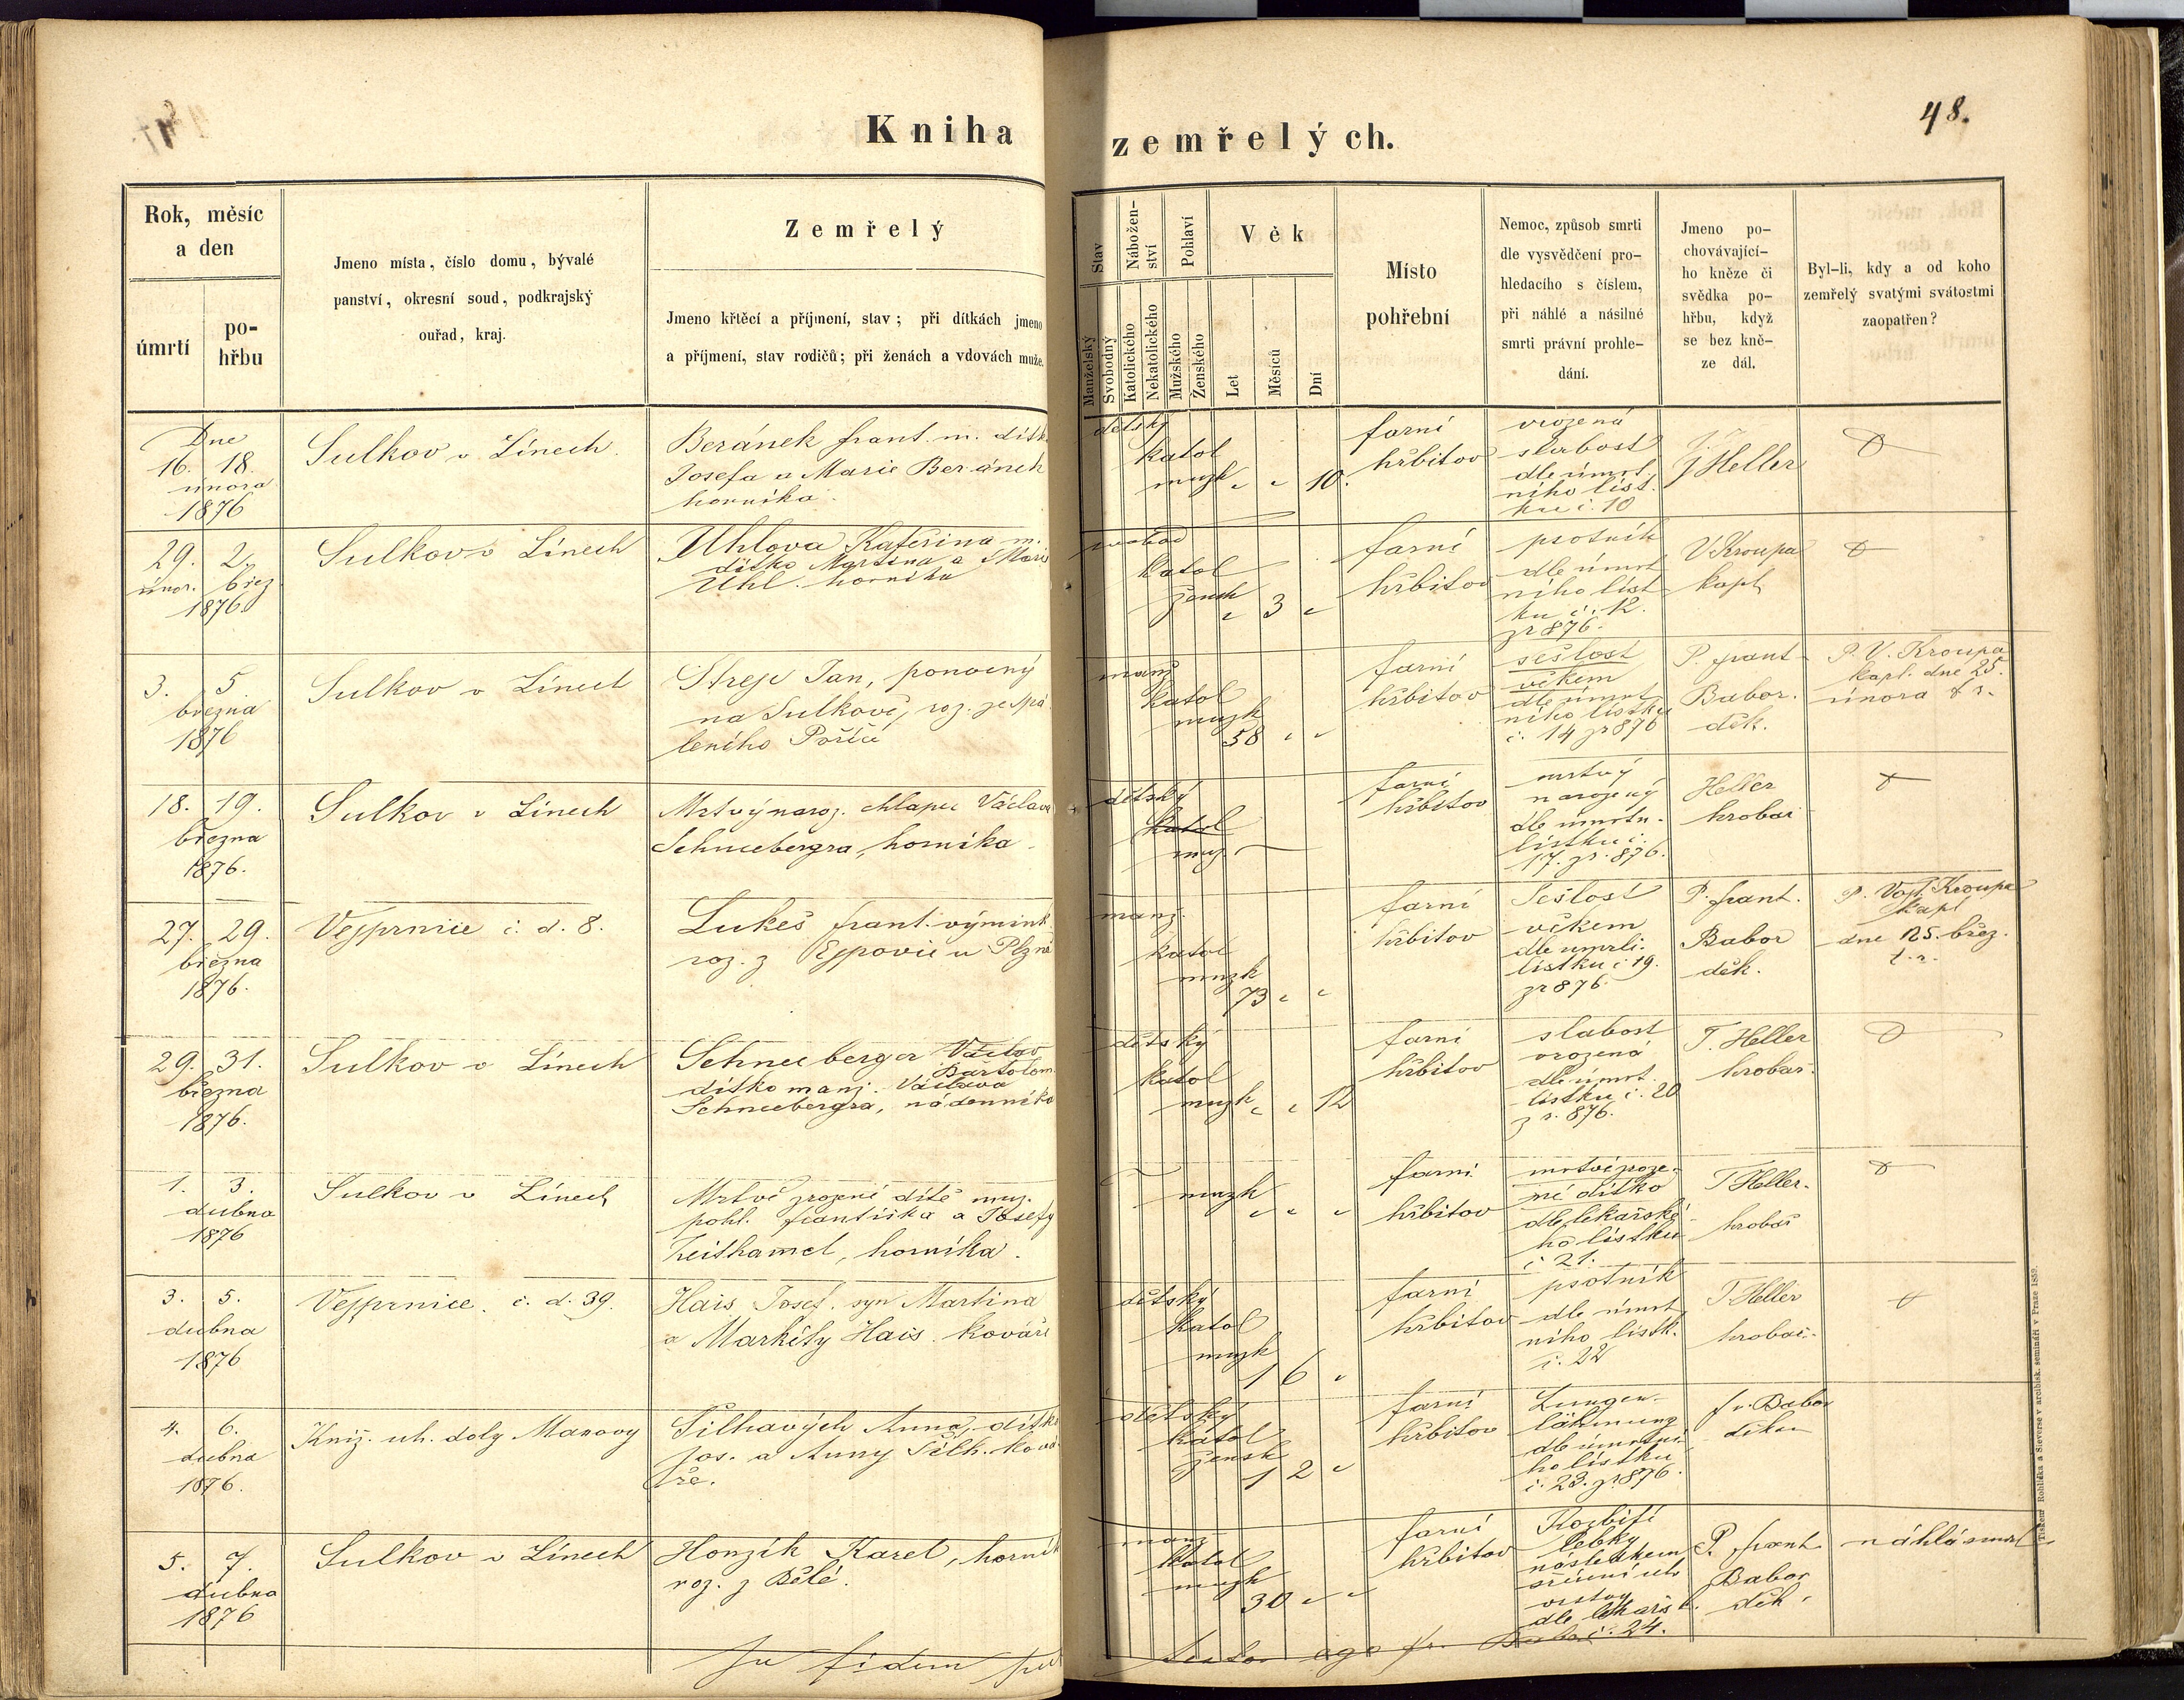 48.
Kniha zemřelých.
Rok, měsíc
a den
úmrtí
po-
hřbu
Jmeno místa, číslo domu, bývalé
panství, okresní soud, podkrajský
ouřad, kraj.
Zemřelý
Jmeno křtěcí a příjmení, stav; při dítkách jmeno
a příjmení, stav rodičů; při ženách a vdovách muže.
Stav
Manželský
Svobodný
Nábožen-
ství
Katolického
Nekatolického
Pohlaví
Mužského
Ženského
Věk
Let
Měsíců
Dní
Místo
pohřební
Nemoc, způsob smrti
dle vysvědčení pro-
hledacího s číslem,
při náhlé a násilné
smrti právní prohle-
dání.
Jmeno po-
chovávající-
ho kněze či
svědka po-
hřbu, když
se bez kně-
ze dál.
Byl-li, kdy a od koho
zemřelý svatými svátostmi
zaopatřen?
Dne
16. 18.
února
1876
Sulkov v Línech.
Beránek frant. m. dítk
Josefa a Marie Beránek
horníka.
dětský
katol
muzk " " 10.
farní
hřbitov
vrozená
slabost
dle úmrt.
ního líst.
ku č. 10
J Heller
29. 2.
únor. břez
1876.
Sulkov v Línech
Uhlova Kateřina m.
dítko Martina a Marie
Uhl. horníka
svobod
katol
žensk
" 3 "
farní
hřbitov
psotník
dle úmrt
ního líst
ku č. 12.
z r 876.
V. Kroupa
kapl
3. 5.
března
1876
Sulkov v Línech
Strejc Jan, ponocný
na Sulkově, roz. ze Spá
leného Poříčí
manž
katol
muzk
58 " "
farní
hřbitov
sešlost
věkem
dle úmrt
ního lístku
č. 14 z r 876
P. frant
Babor.
děk.
P. V. Kroupa
kapl. dne 25.
února t r.
18. 19.
března
1876.
Sulkov v Línech
Mrtvý naroz. chlapec Václava
Schneebergra, horníka.
dětský
katol
muz.
farní
hřbitov
mrtvý
narozený
dle úmrtn.
lístku č.
17. z r. 876.
Heller
hrobař
27. 29.
března
1876.
Vejprnice č. d. 8.
Lukeš frant. výmink
roz. z Ejpovic u Plzně
manž.
katol
muzk
73 " "
farní
hřbitov
Sešlost
věkem
dle umrlč.
lístku č 19.
z r 876.
P. frant.
Babor
děk.
P. Vojt. Kroupa
kapl
dne 25. břez.
t. r.
29. 31.
března
1876.
Sulkov v Línech
Schneeberger Václav
Bartolom.
dítko manž. Václava
Schneebergra, nádenníka
dětský
katol
muzk " " 12
farní
hřbitov
slabost
vrozená
dle úmrt.
lístku č. 20
z r. 876.
T. Heller
hrobař.
1. 3.
dubna
1876
Sulkov v Línech
Mrtvě zrozené dítě muž.
pohl. františka a Josefy
Keithamel, horníka.
muzk
" " "
farní
hřbitov
mrtvě zroze-
né dítko
dle lékařské
ho lístku
č 21.
T Heller.
hrobař
3. 5.
dubna
1876
Vejprnice. č. d. 39.
Hais Josef. syn Martina
a Markéty Hais. kováře
dětský
katol
muzk
1 6 "
farní
hřbitov
psotník
dle úmrt
ního lístk.
č. 22
T Heller
hrobař.
4. 6.
dubna
1876.
Kníž. uh. doly Manovy
Šilhavých Anna, dítko
Jos. a Anny Šilh. ková
ře.
dětský
katol
žensk
1 2 "
farní
hřbitov
Lungen-
lähmung
dle úmrtní
ho lístku
č. 23. z r 876.
fr. Babor
děkan
5. 7.
dubna
1876
Sulkov v Línech
Honzík Karel, horník
roz. z Bělé.
manž
katol
muzk
30 " "
farní
hřbitov
Rozbití
lebky
následkem
sřícení uh
vrstvy
dle lékařs l.
č. 24.
P. frant
Babor
děk.
náhlá smrt
In fidem